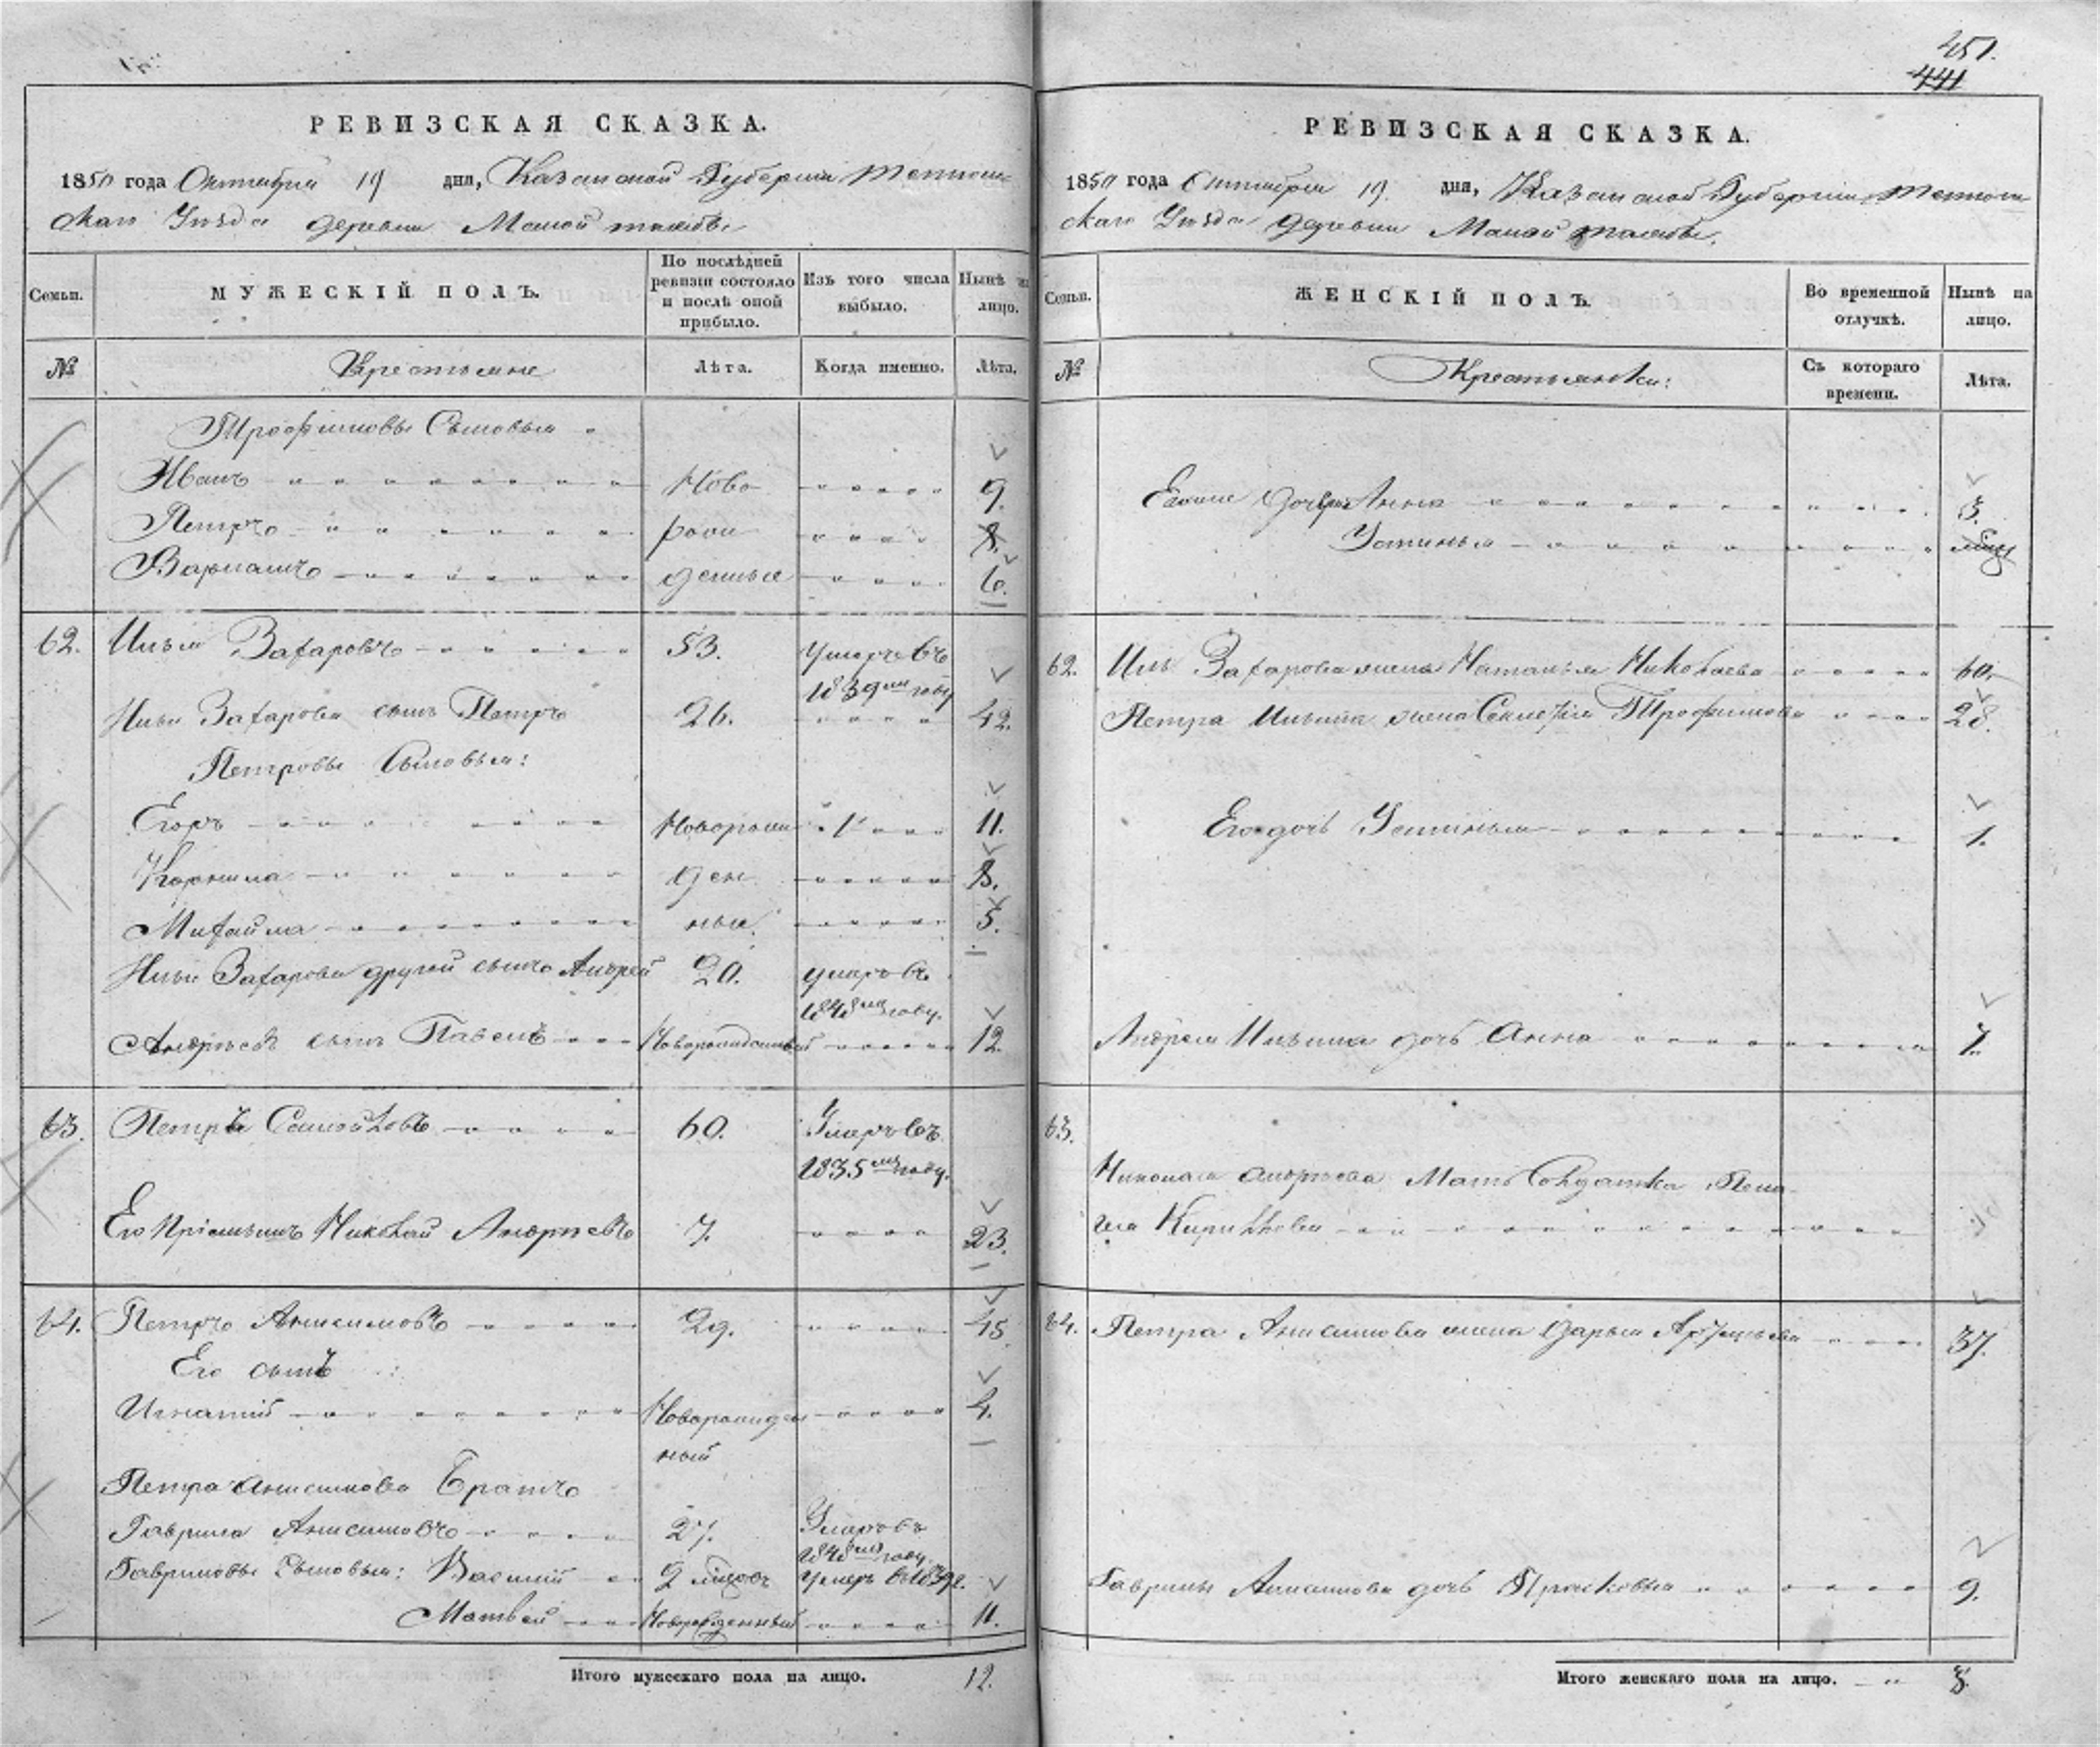 451.
441
РЕВИЗСКАЯ СКАЗКА.
1850 года Октября 19 дня, Казанской Губернии Тетюш
скаго Уѣзда деревни Малой
Семьи.
МУЖЕСКІЙ ПОЛЪ.
По послѣдней ревизіи состояло и послѣ оной прибыло.
Изъ того числа выбыло.
Нынѣ на лицо.
№
Крестьяне
Лѣта.
Когда именно.
Лѣта.
Трофимовы Сыновья
Иванъ Ново 9.
Петръ рож 8.
Варламъ денные 6.
62. Илья Захаровъ 53. Умеръ въ
1839мъ году
Ильи Захарова сынъ Петръ 26. 42.
Петровы Сыновья:
Егоръ Наворож 11.
Корнила ден 8.
Михайла ные. 5.
Ильи Захарова другой сынъ Андрей 20. умеръ въ
1848мъ году.
Андреевъ сынъ Павелъ Наворожденный 12.
63. Петръ Самойловъ 60. Умеръ въ
1835мъ году.
Его Пріемышъ Николай Андреевъ 7. 23.
64. Петръ Анисимовъ 29. 45.
Его сынъ:
Игнатій Наворожден 4.
ный
Петра Анисимова Братъ
Гаврила Анисимовъ 27. Умеръ въ
1848мъ году.
Гавриловы Сыновья: Василий 2 Умеръ въ 1839г.
Матвей Наворожденный 11.
Итого мужескаго пола на лицо. 12.
РЕВИЗСКАЯ СКАЗКА.
1850 года Октября 19. дня, Казанской Губерніи Тетюш
скаго Уѣзда деревни Малой
Семьи.
ЖЕНСКІЙ ПОЛЪ.
Во временной отлучкѣ.
Нынѣ на лицо.
№
Крестьянки:
Съ котораго времени.
Лѣта.
дочери Анна 3.
Устинья
62. Ильи Захарова жена Наталья Николаева 60.
Петра Ильина жена Трофимова 28.
Его дочь Устинья 1.
Андрея Ильина дочь Анна 7.
63.
Николая Андреева Мать Солдатка Пела
гея Кирилова
64. Петра Анисимова жена Дарья 37.
Гаврилы Анисимова дочь Прасковья 9.
Итого женскаго пола на лицо. 8.